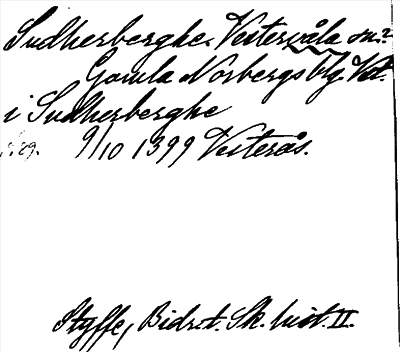 Sudherberghe. Vestervåla sn?
Gamla Norbergs blg. Vstm.
i Sudherberghe
9/10 1399 Vesterås.
Styffe, Bidr. t. Sk. hist. II.